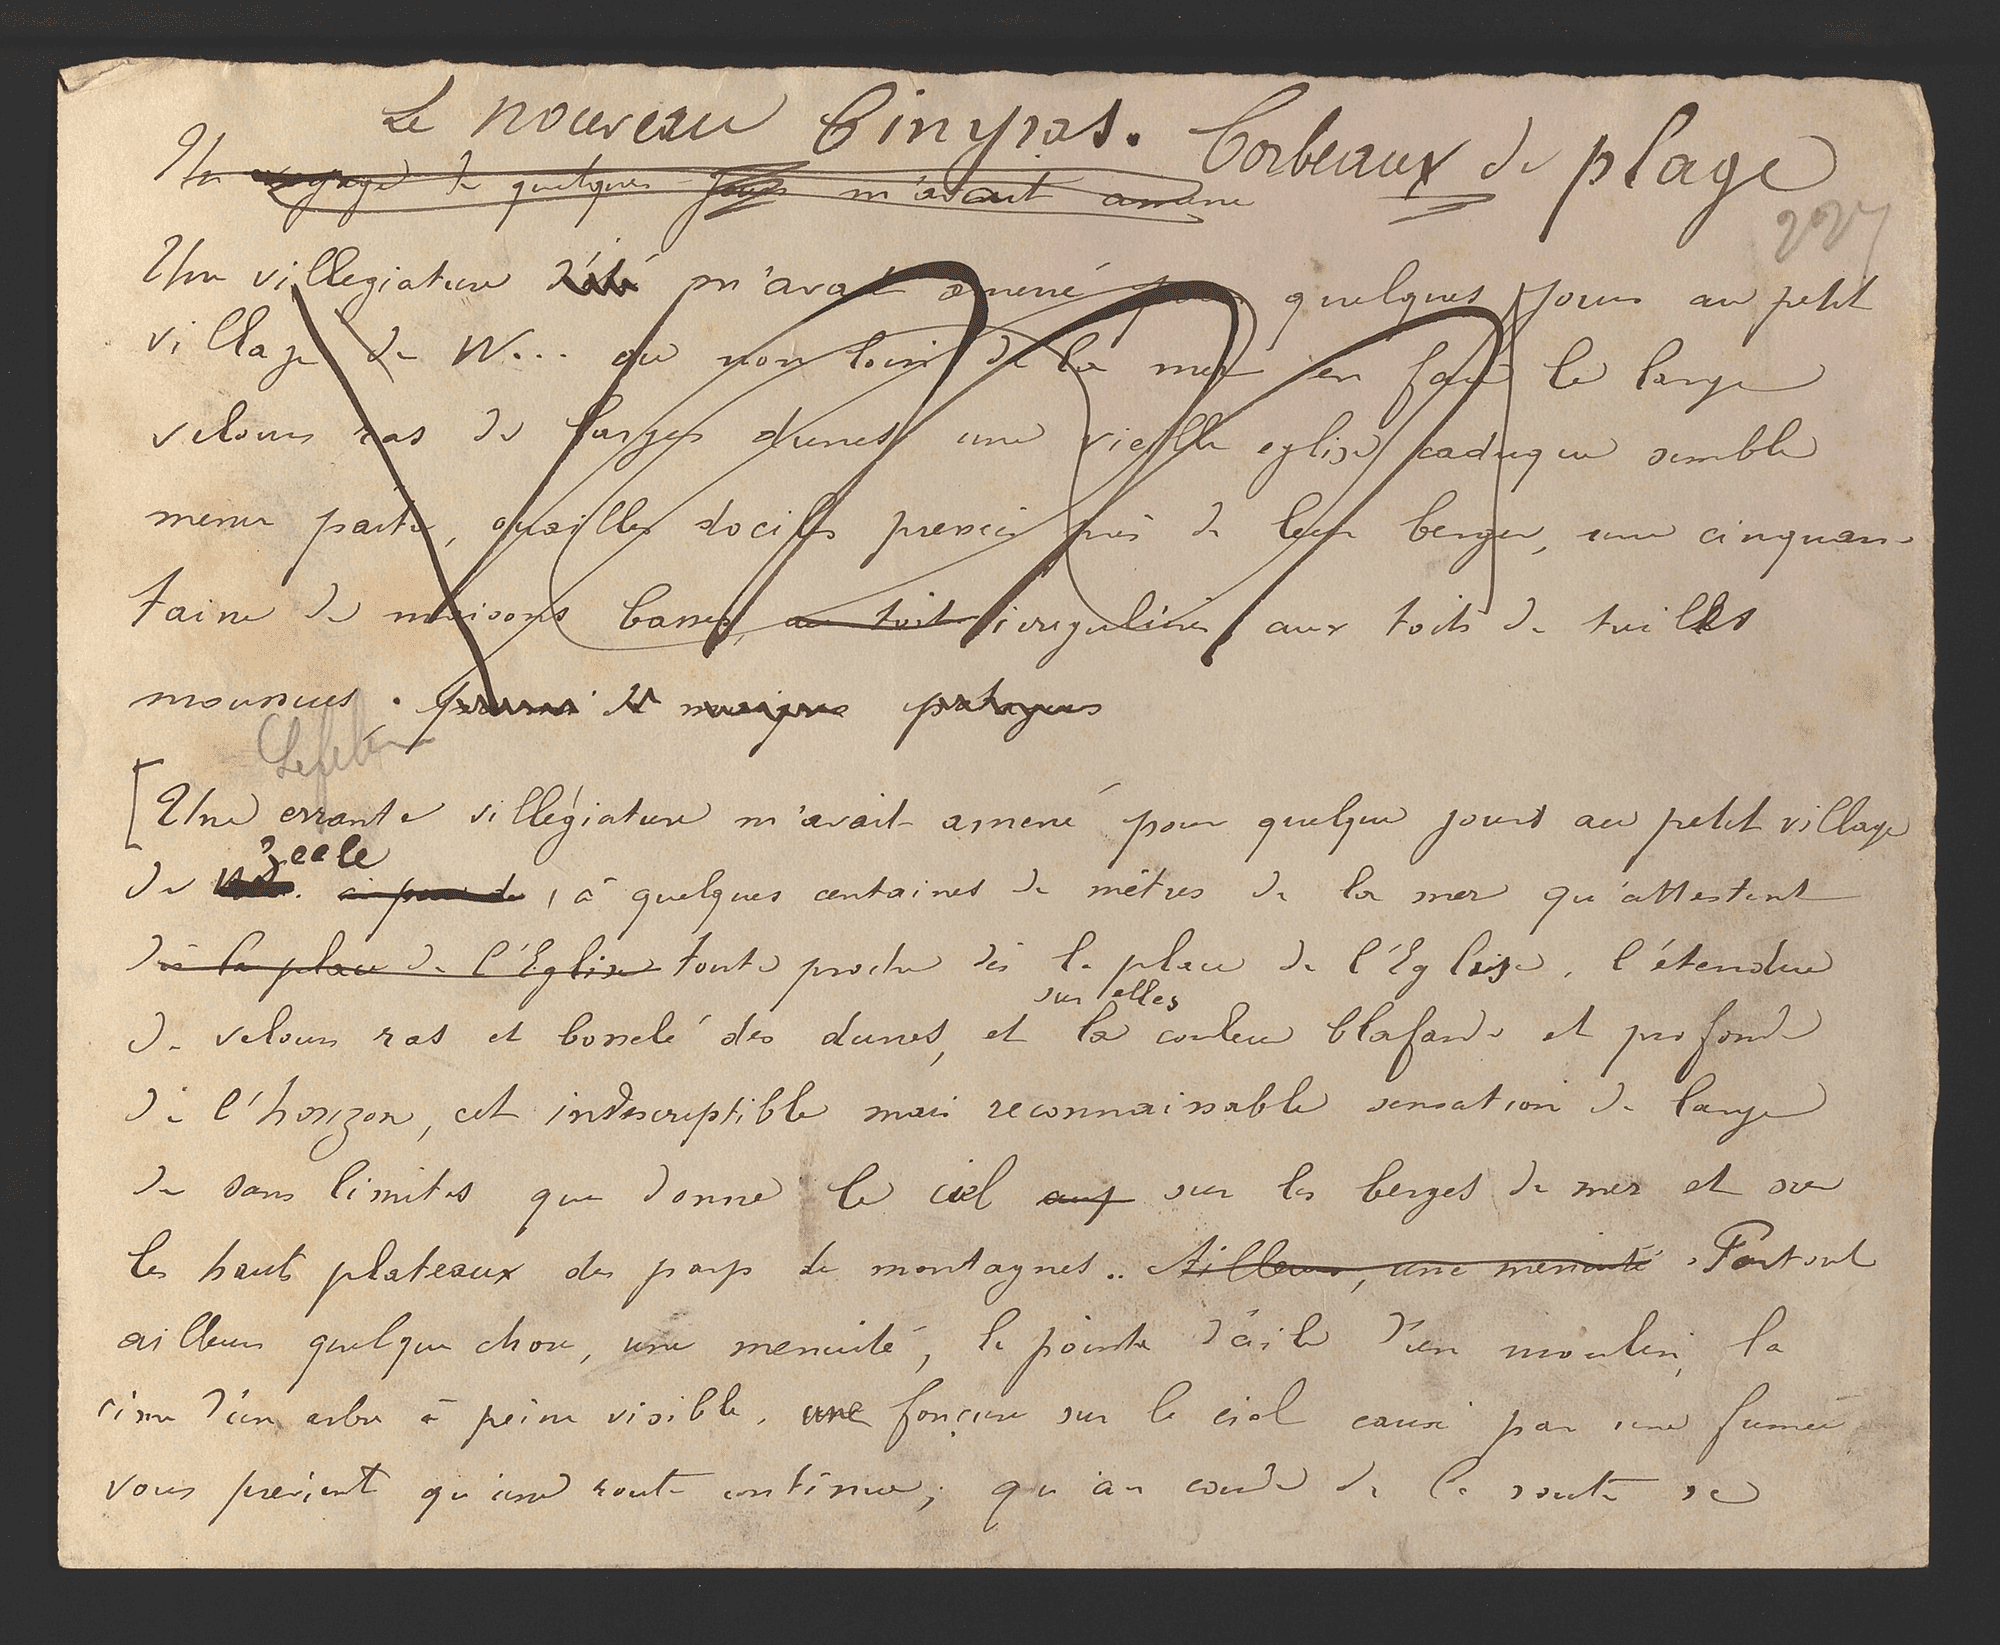 Le nouveau Cinyras. Corbeaux de plage
Un voyage de quelques jours m'avait amené
227
Une villegiature d'été m'avait amené pour quelques jours au petit
village de W... ou non loin de la mer en face le large
velours ras de larges dunes une vieille eglise caduque semble
mener paitre, ouailles dociles pressées près de leur berger, une cinquan-
taine de maisons basses, au toit irrégulières, aux toits de tuilles
moussues.
Lefebvre
[Une errante villégiature m'avait amené pour quelque jours au petit village
d'Ecale
de W... , à quelques centaines de mètres de la mer qu'attestent
dès la place de l'Eglise toute proche dès la place de l'Eglise, l'étendue
sur elles
de velours ras et bosselé des dunes, et la couleur blafarde et profonde
de l'horizon, cet indescriptible mais reconnaissable sensation de large
de sans limites que donne le ciel sur les berges de mer et sur
les hauts plateaux des pays de montagnes.. Ailleurs, une menuité Partout
ailleurs quelque chose, une menuité, la pointe d'aile d'un moulin, la
cime d'un arbre à peine visible, une fonçure sur le ciel causé par une fumée
vous previent qu'une route continue, qu'au coude de la route se